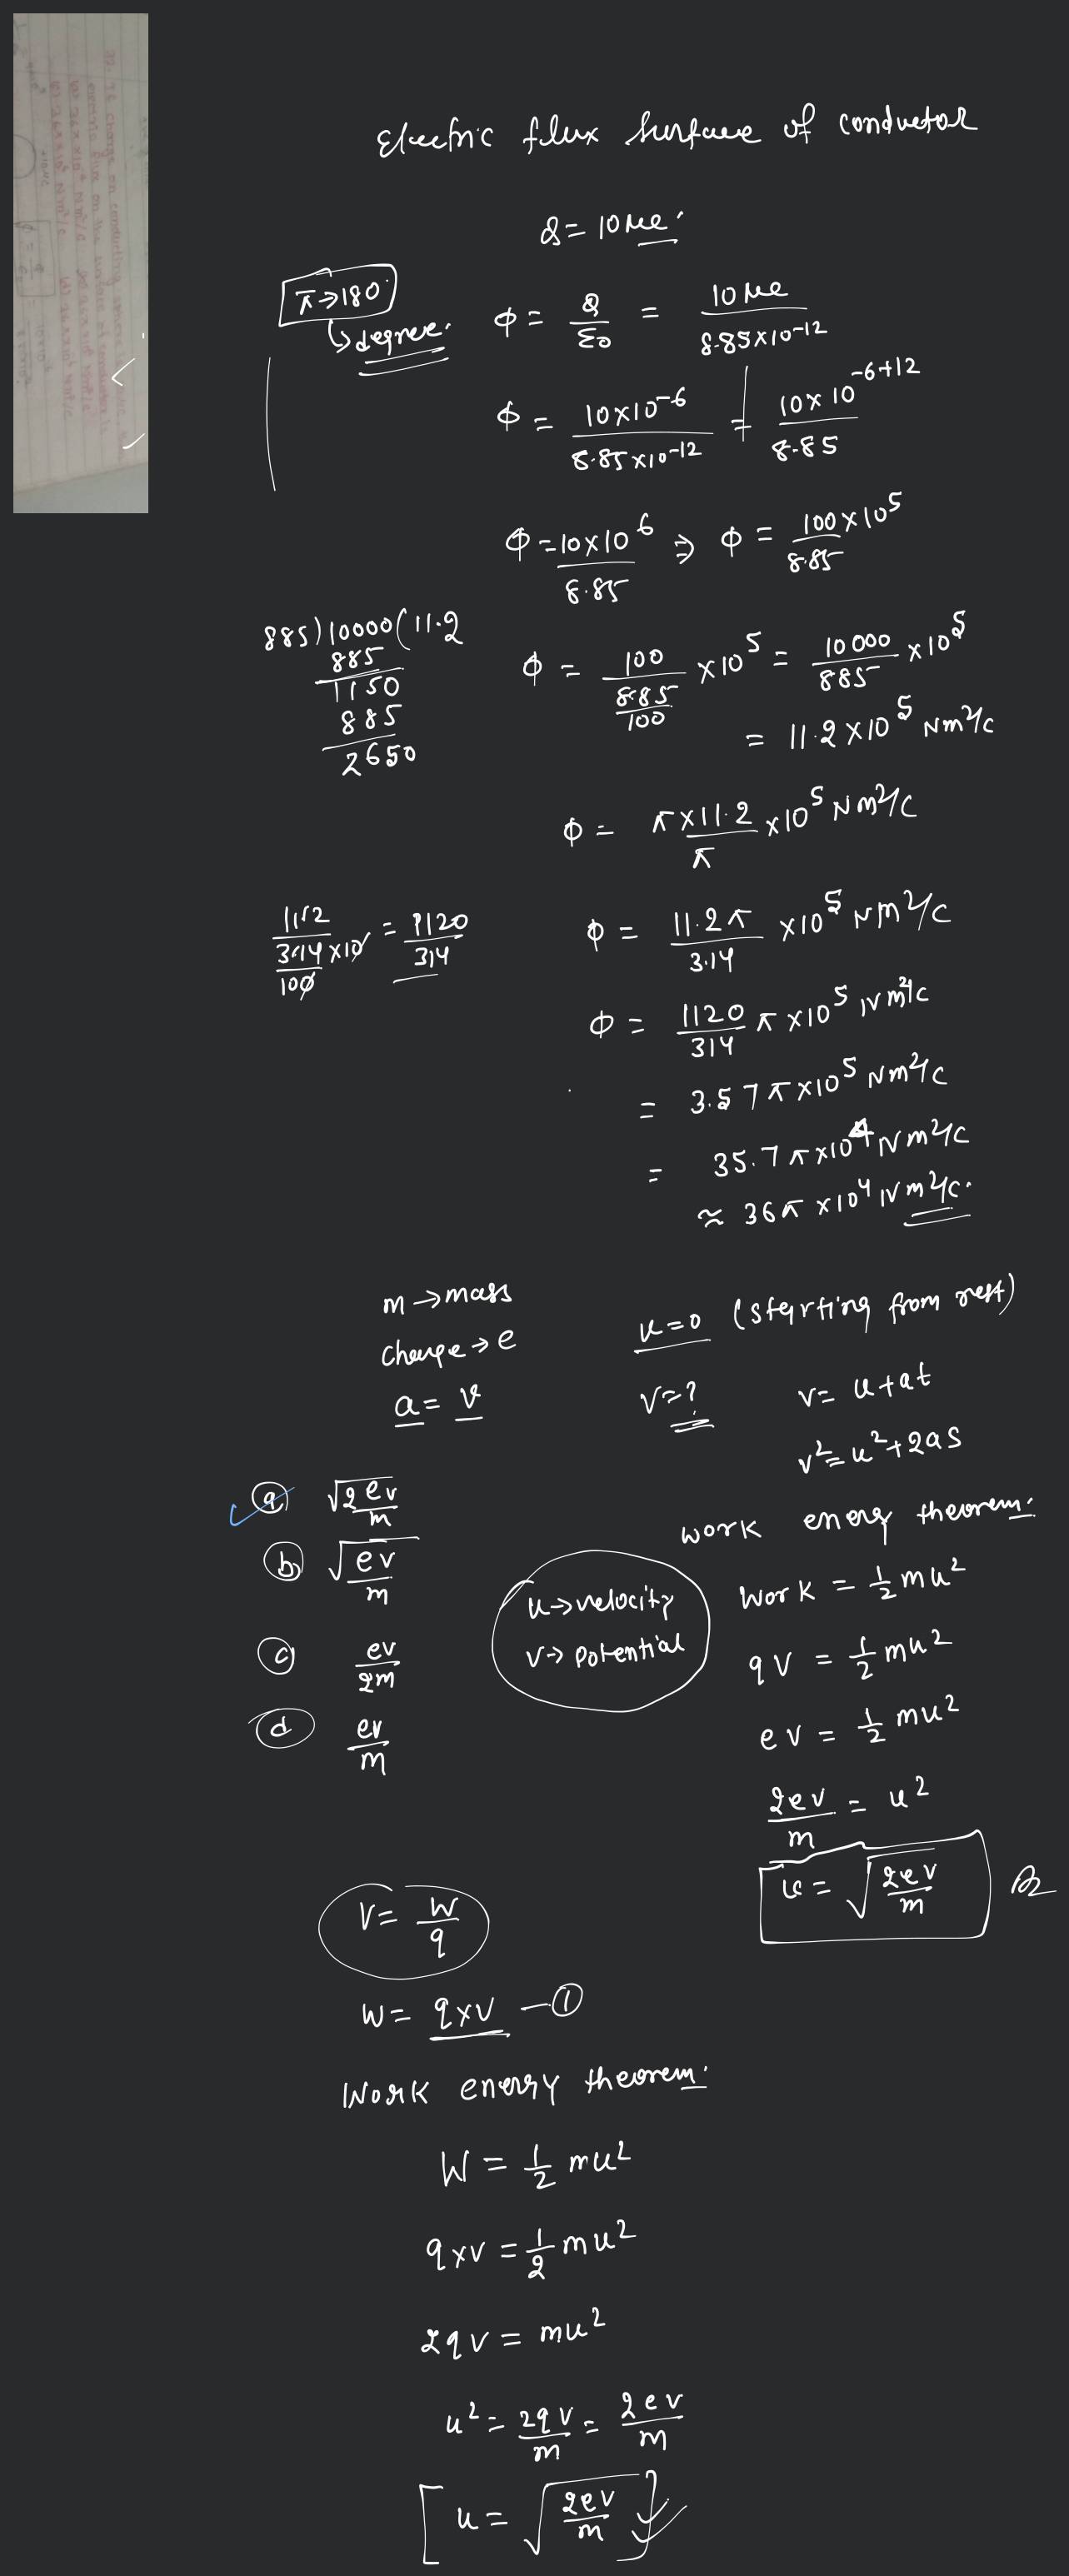 Electric flux surface of conductor
Q = 10 μC.
π → 180
↳ degree.
φ = Q/ε0 = 10 μC / 8.85×10^-12
φ = 10×10^-6 / 8.85×10^-12 = 10×10^-6+12 / 8.85
φ = 10×10^6 / 8.85 ⇒ φ = 100×10^5 / 8.85
885)10000(11.2
885
1150
885
2650
φ = 100 / (885/100) ×10^5 = 10000/885 ×10^5
= 11.2×10^5 Nm²/C
φ = π×11.2/π ×10^5 Nm²/C
= 1120/314
φ = 11.2π/3.14 ×10^5 Nm²/C
φ = 1120/314 π×10^5 Nm²/C
= 3.57π×10^5 Nm²/C
= 35.7π×10^4 Nm²/C
≈ 36π×10^4 Nm²/C.
m → mass
charge → e
a = v
u=0 (starting from rest)
v=?
v = u+at
v² = u²+2as
(a) √2ev/m
(b) √ev/m
(c) ev/2m
(d) ev/m
u → velocity
v → potential
work energy theorem.
Work = 1/2 mu²
qV = 1/2 mu²
ev = 1/2 mu²
2ev/m = u²
u = √2ev/m
V = W/q
W = q×V —①
Work energy theorem.
W = 1/2 mu²
q×v = 1/2 mu²
2qv = mu²
u² = 2qv/m = 2ev/m
[u = √2ev/m]